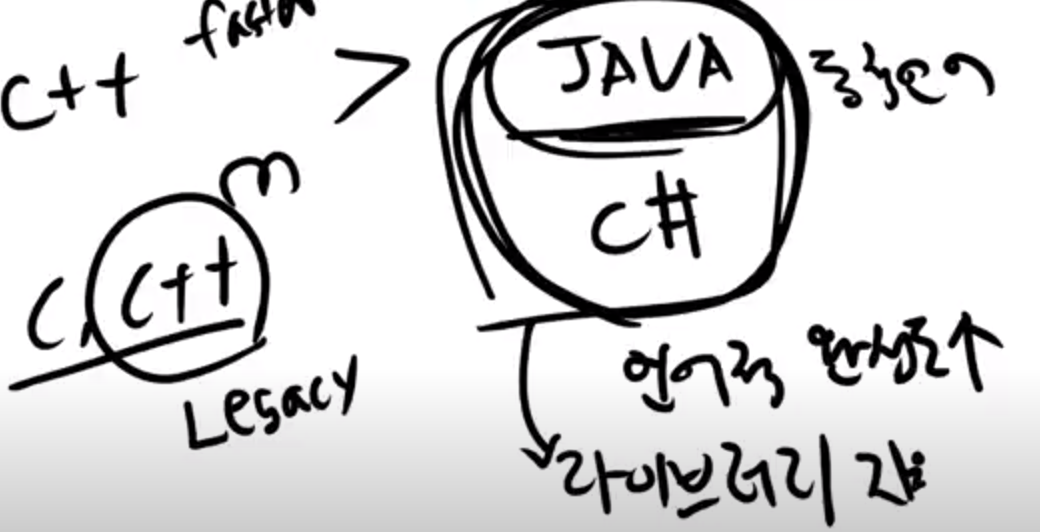 C++ faster > JAVA
C#
C, C++
Legacy
언어적 완성도↑
라이브러리